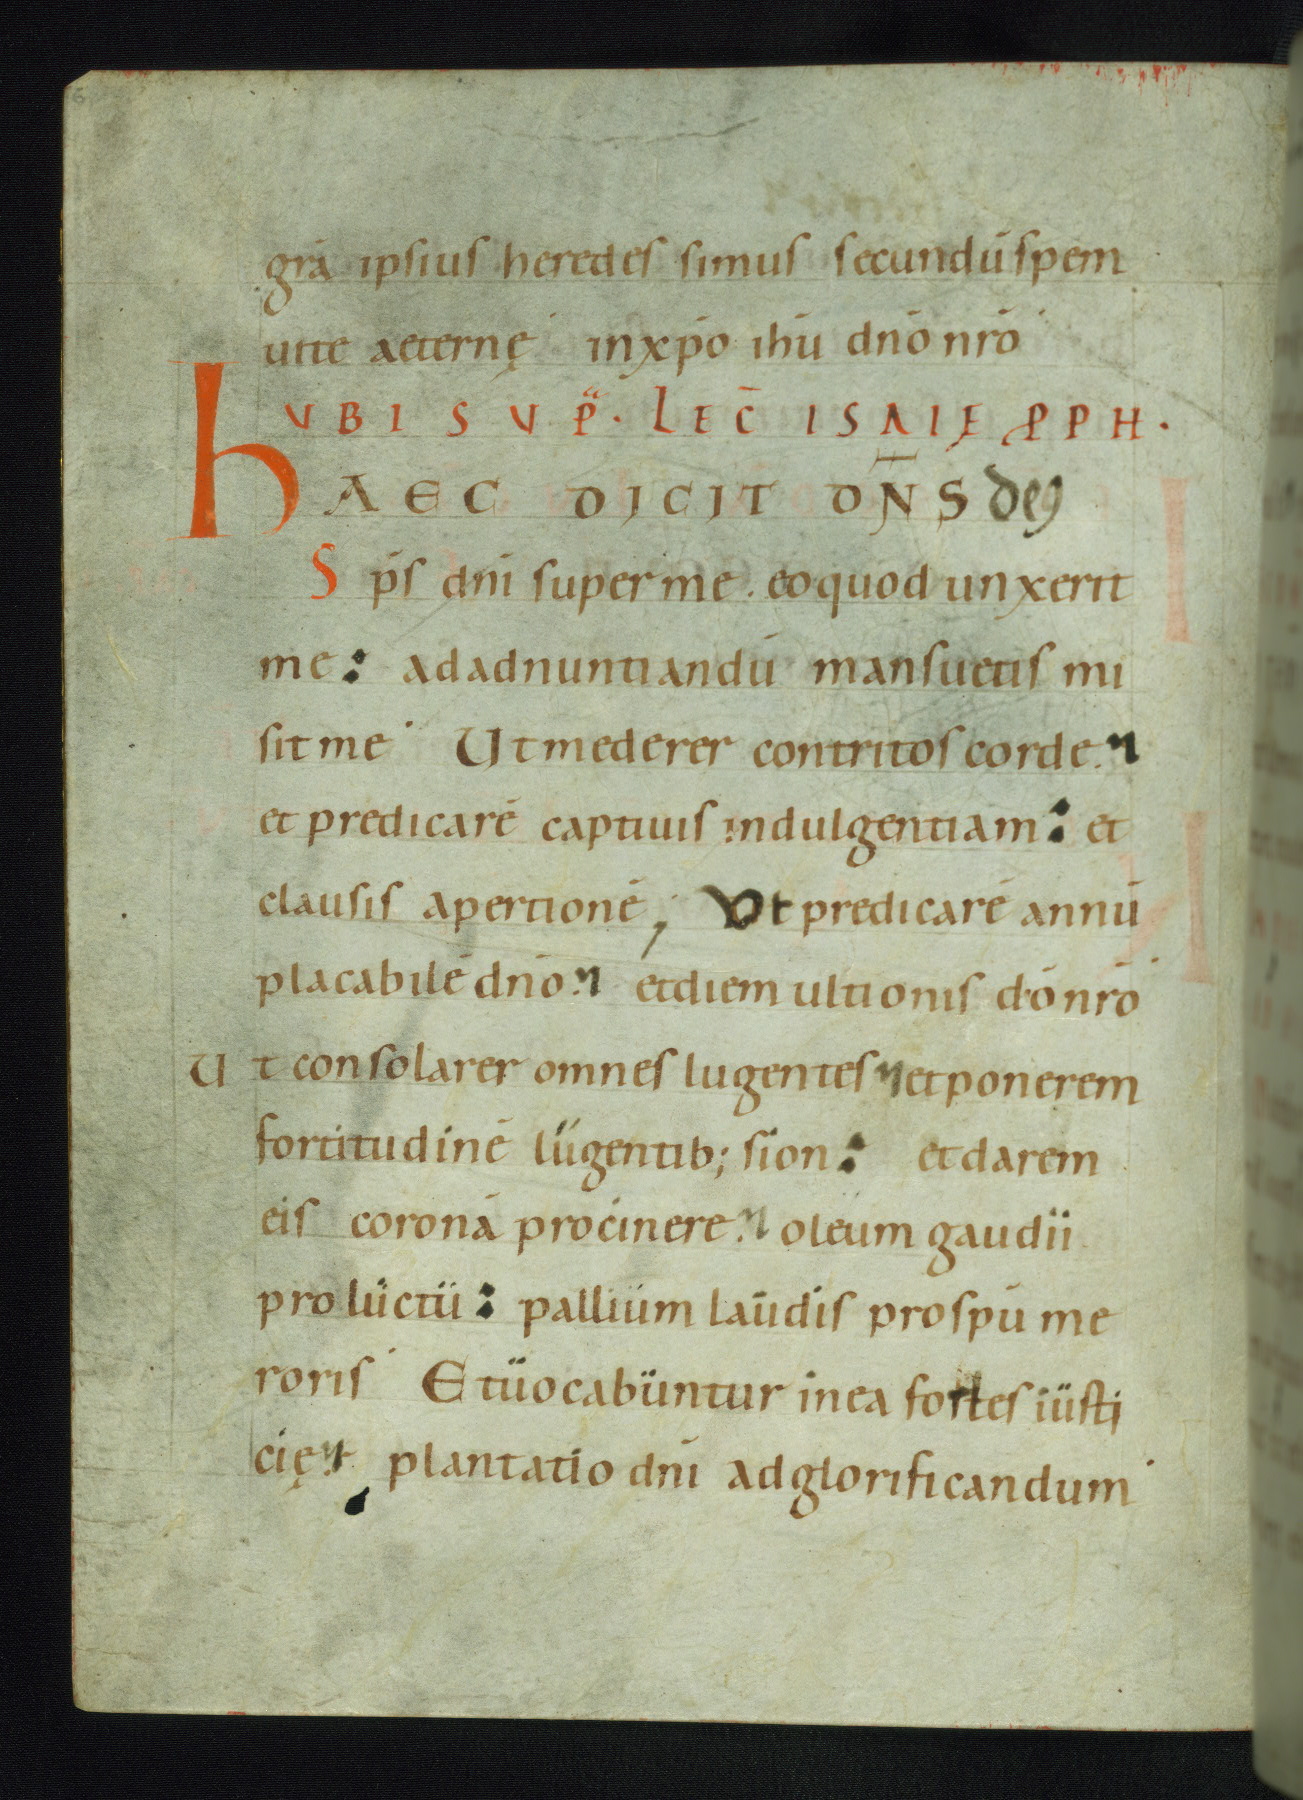 grā ipsius heredes simus secundū spem
uitę aeternę in xpō ihū dnō nrō
UBI SUPᵃ. LEC̄ ISAIĘ PPH.
HAEC DICIT DN̄S deꝰ
Sp̄s dnī super me. eo quod unxerit
me: ad adnuntiandū mansuetis mi
sit me Ut mederer contritos corde.
et predicarē captiuis indulgentiam: et
clausis apertionē; Ut predicarē annū
placabilē dnō. et diem ultionis dō nrō
Ut consolarer omnes lugentes et ponerem
fortitudinē lugentib; sion: et darem
eis coronā pro cinere. oleum gaudii
pro luctu: pallium laudis pro spū me
roris Et uocabuntur in ea fortes iusti
cię. plantatio dnī ad glorificandum